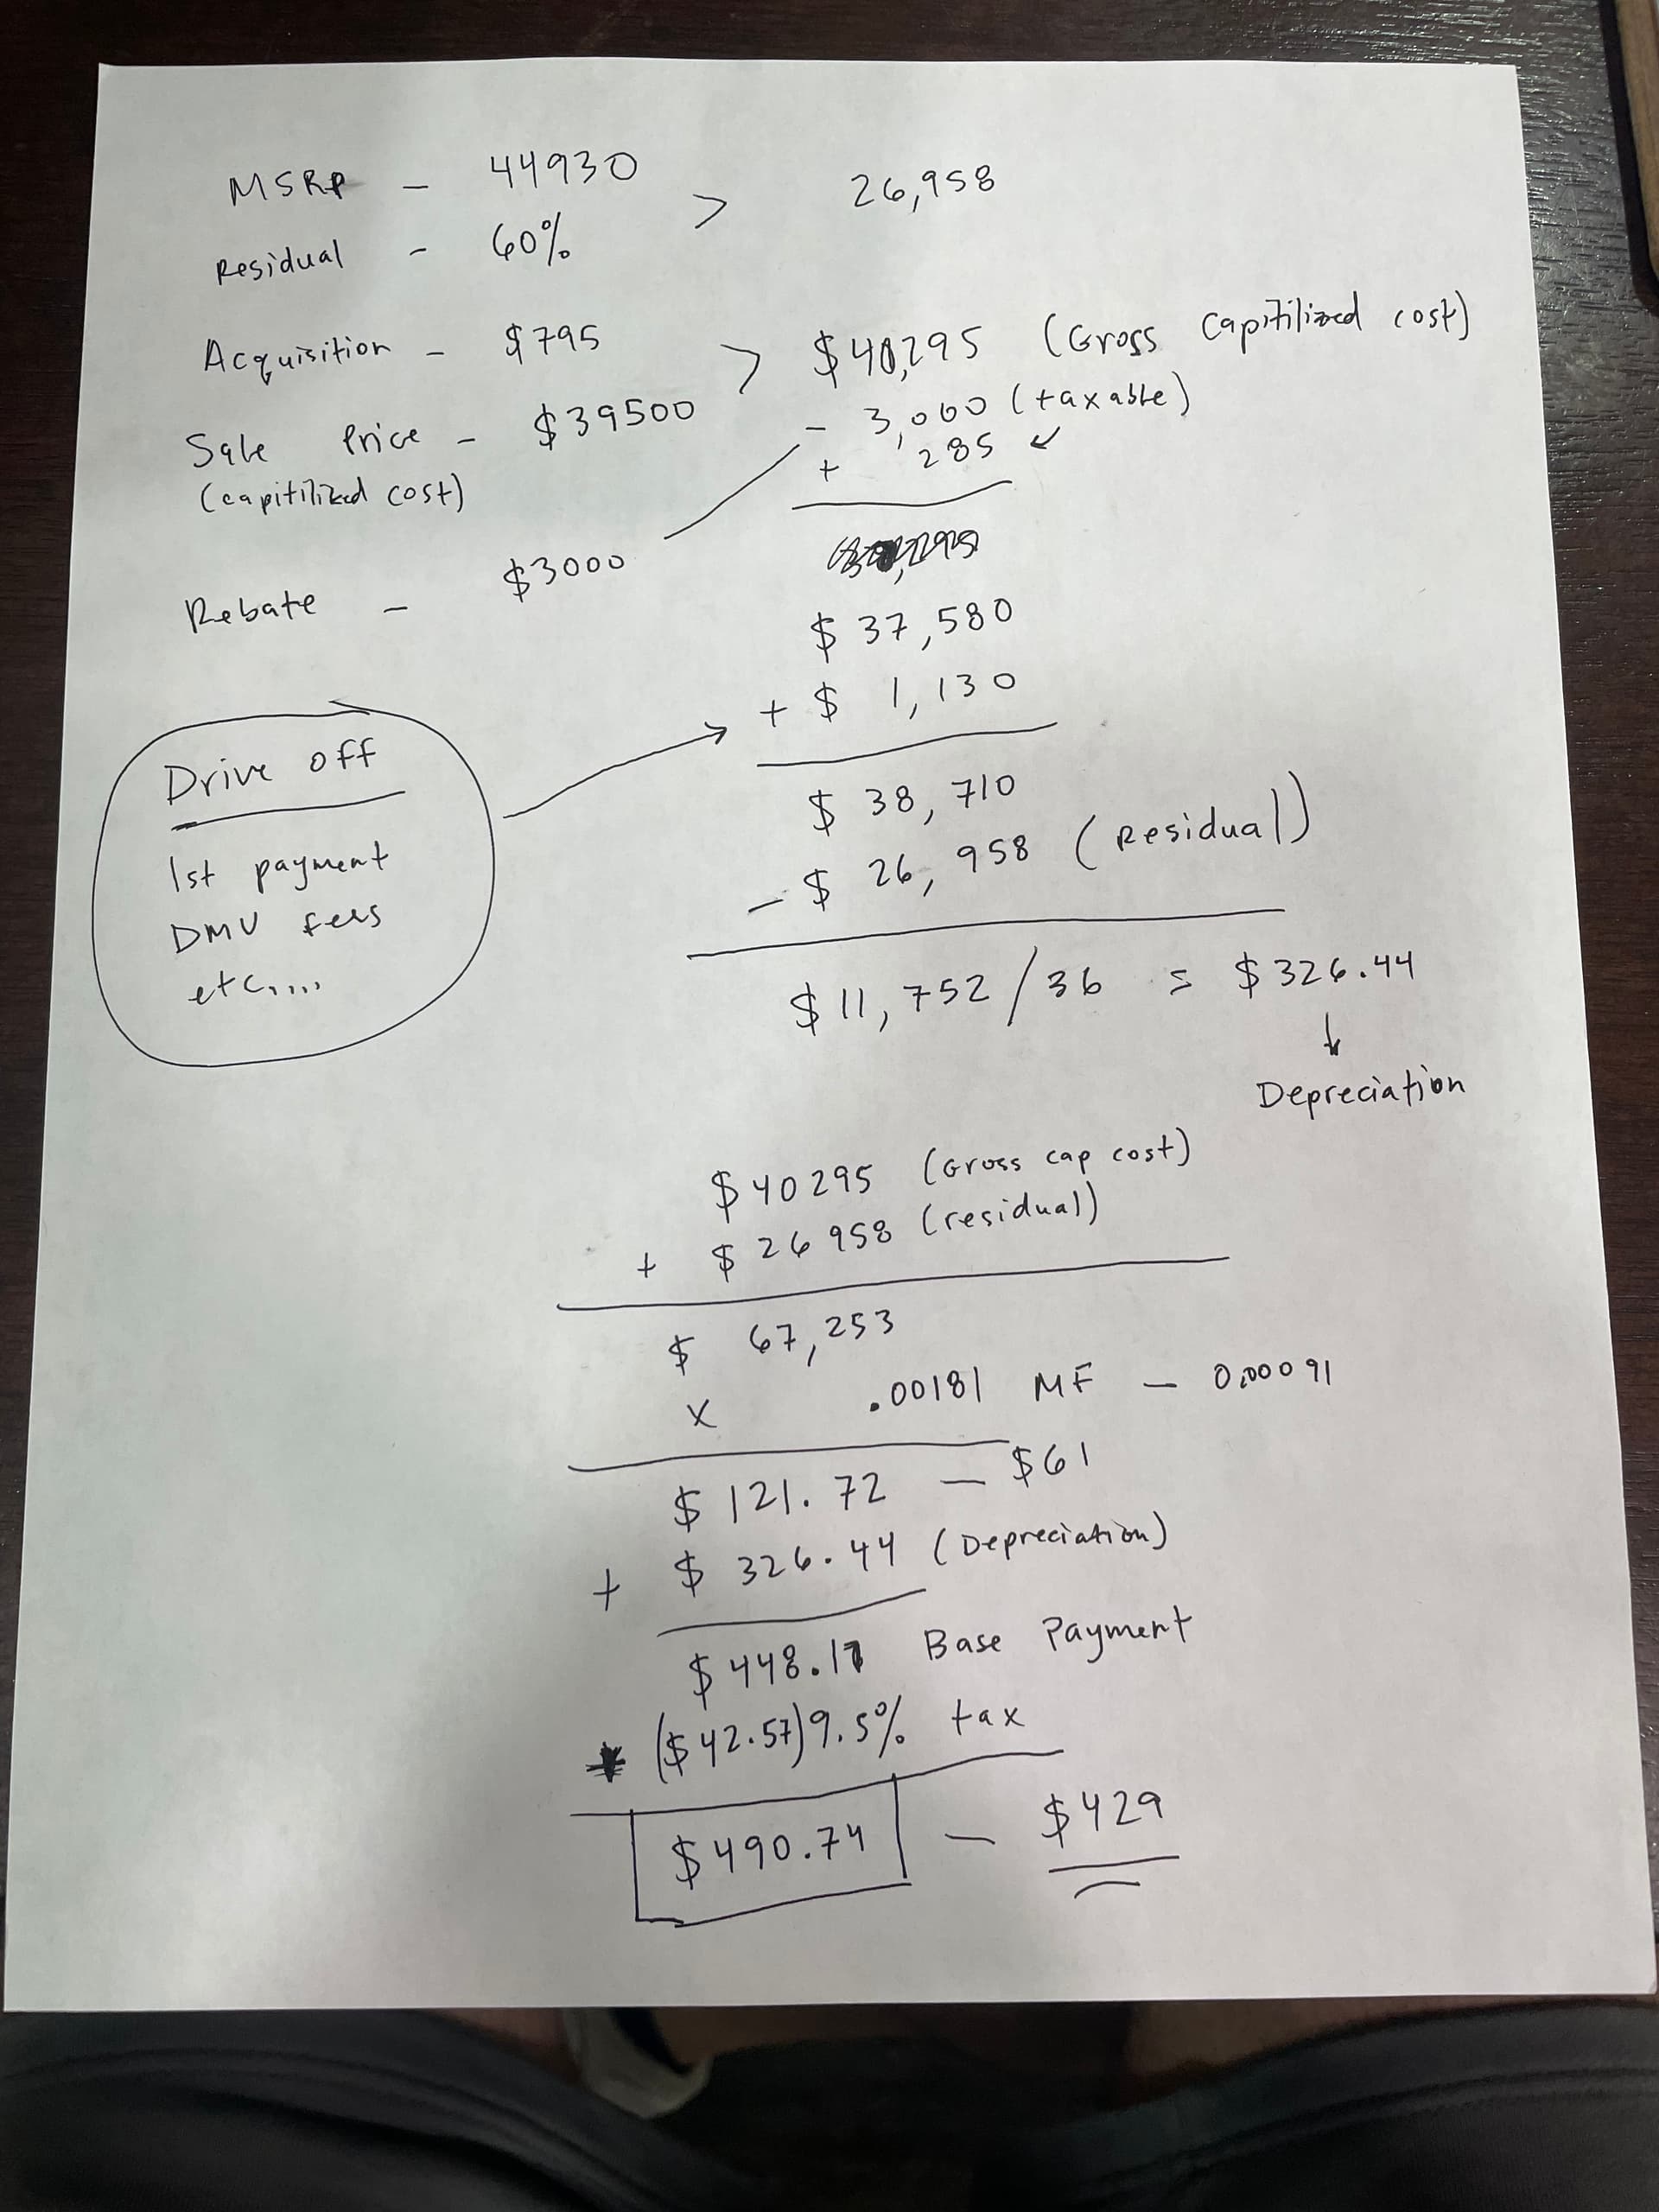 MSRP - 44930 > 26,958
Residual - 60%
Acquisition - $795 > $40,295 (Gross Capitilized cost)
Sale Price - $39500
(capitilized cost)
- 3,000 (taxable)
+ 285 ↙
Rebate - $3000
$37,580
+ $ 1,130
Drive off
1st payment
DMV fees
etc....
$ 38,710
- $ 26,958 (Residual)
$11,752/36 = $326.44
↓
Depreciation
$40295 (Gross cap cost)
+ $26958 (residual)
$ 67,253
x .00181 MF - 0.00091
$121.72 - $61
+ $ 326.44 (Depreciation)
$448.17 Base Payment
($42.57) 9.5% tax
$490.74 - $429